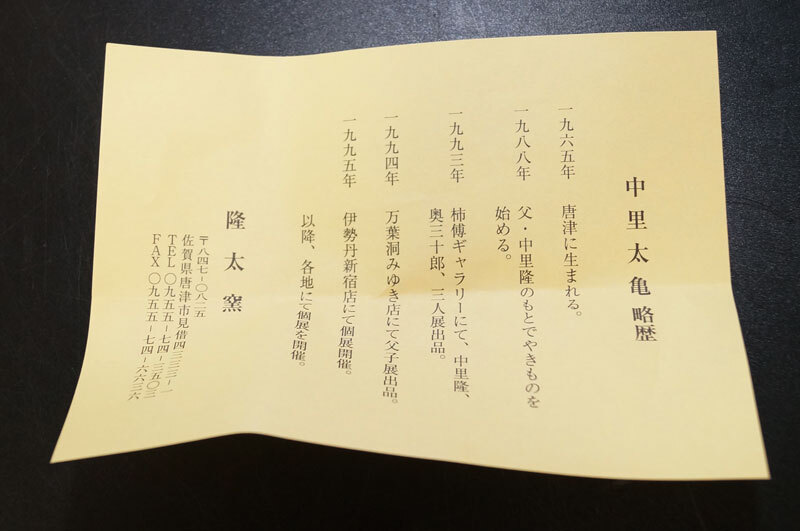 中里太亀略歴
一九六五年 唐津に生まれる。
一九八八年 父・中里隆のもとでやきものを
始める。
一九九三年 柿傅ギャラリーにて、中里隆、
奥三十郎、三人展出品。
一九九四年 万葉洞みゆき店にて父子展出品。
一九九五年 伊勢丹新宿店にて個展開催。
以降、各地にて個展を開催。
隆太窯
〒八四七-〇八二五
佐賀県唐津市見借四三三三-一
TEL〇九五五-七四-三五〇三
FAX〇九五五-七四-六六三六